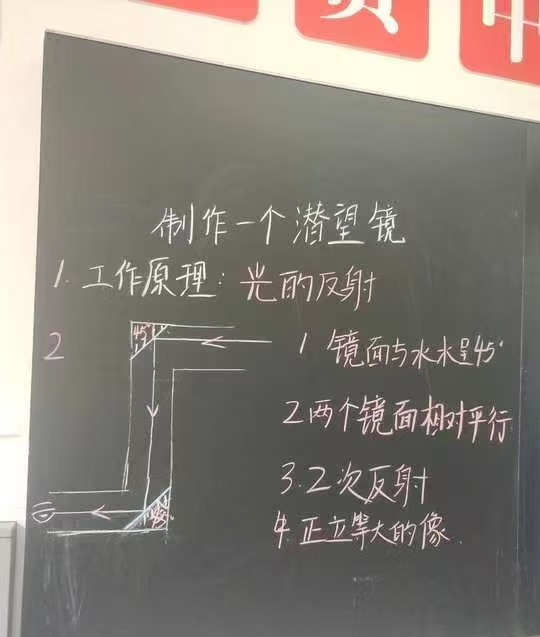 制作一个潜望镜
1. 工作原理: 光的反射
2
45°
1 镜面与水水呈45°
2 两个镜面相对平行
3. 2次反射
4. 正立等大的像.